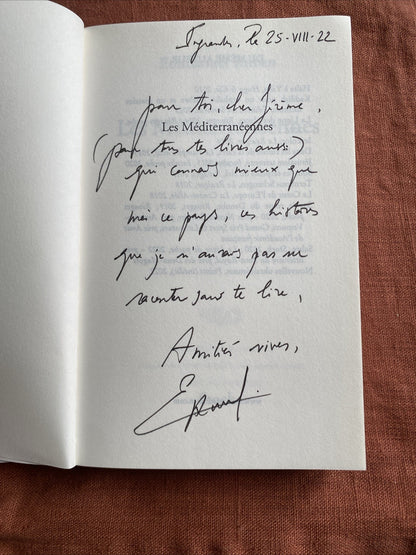 Ingrandes, le 25-VIII-22
pour toi, cher Jérôme,
Les Méditerranéennes
(pour tous tes livres aussi)
qui connais mieux que
moi ce pays, ces histoires
que je n'aurais pas su
raconter sans te lire,
Amitiés vives,